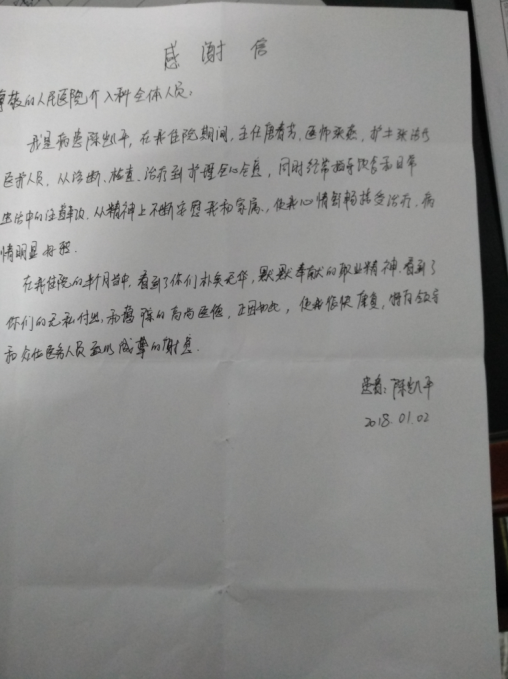 感谢信
尊敬的人民医院介入科全体人员:
我是病患陈凯平,在我住院期间,主任唐育芳、医师
医护人员,从诊断、检查、治疗到护理全心全意,同时经常指导饮食和日常
生活中的注意事项,从精神上不断安慰我和家属,使我心情舒畅接受治疗,病
情明显好转.
在我住院的半个月当中,看到了你们朴实无华,默默奉献的职业精神.看到了
你们的无私付出,和
的高尚医德,正因如此,使我很快康复,
和各位医务人员致以诚挚的谢意.
患者:陈凯平
2018.01.02